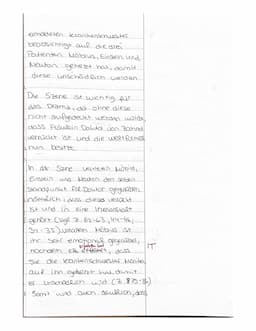 ermordeten Krankenschwester
beabsichtigt auf die drei
Patienten Möbius, Einstein und
Newton gehetzt hat, damit
diese unschädlich werden.
Die Szene ist wichtig für
das Drama, da ohne diese
nicht aufgedeckt werden würde,
dass Fräulein Doktor von Zahnd
verrückt ist und die Weltformel
nun besitzt.
In der Szene vertreten Möbius,
Einstein und Newton den selben
Standpunkt Frl. Doktor gegenüber,
nämlich, dass diese verrückt
ist und in eine Irrenanstalt
gehört (vgl. Z.
Möbius ist
ihr sehr emotional gegenüber,
nachdem dass
sie die Krankenschwester Monika
auf ihn gehetzt hat, damit
er unschädlich wird (Z.
Somit wird auch deutlich, dass